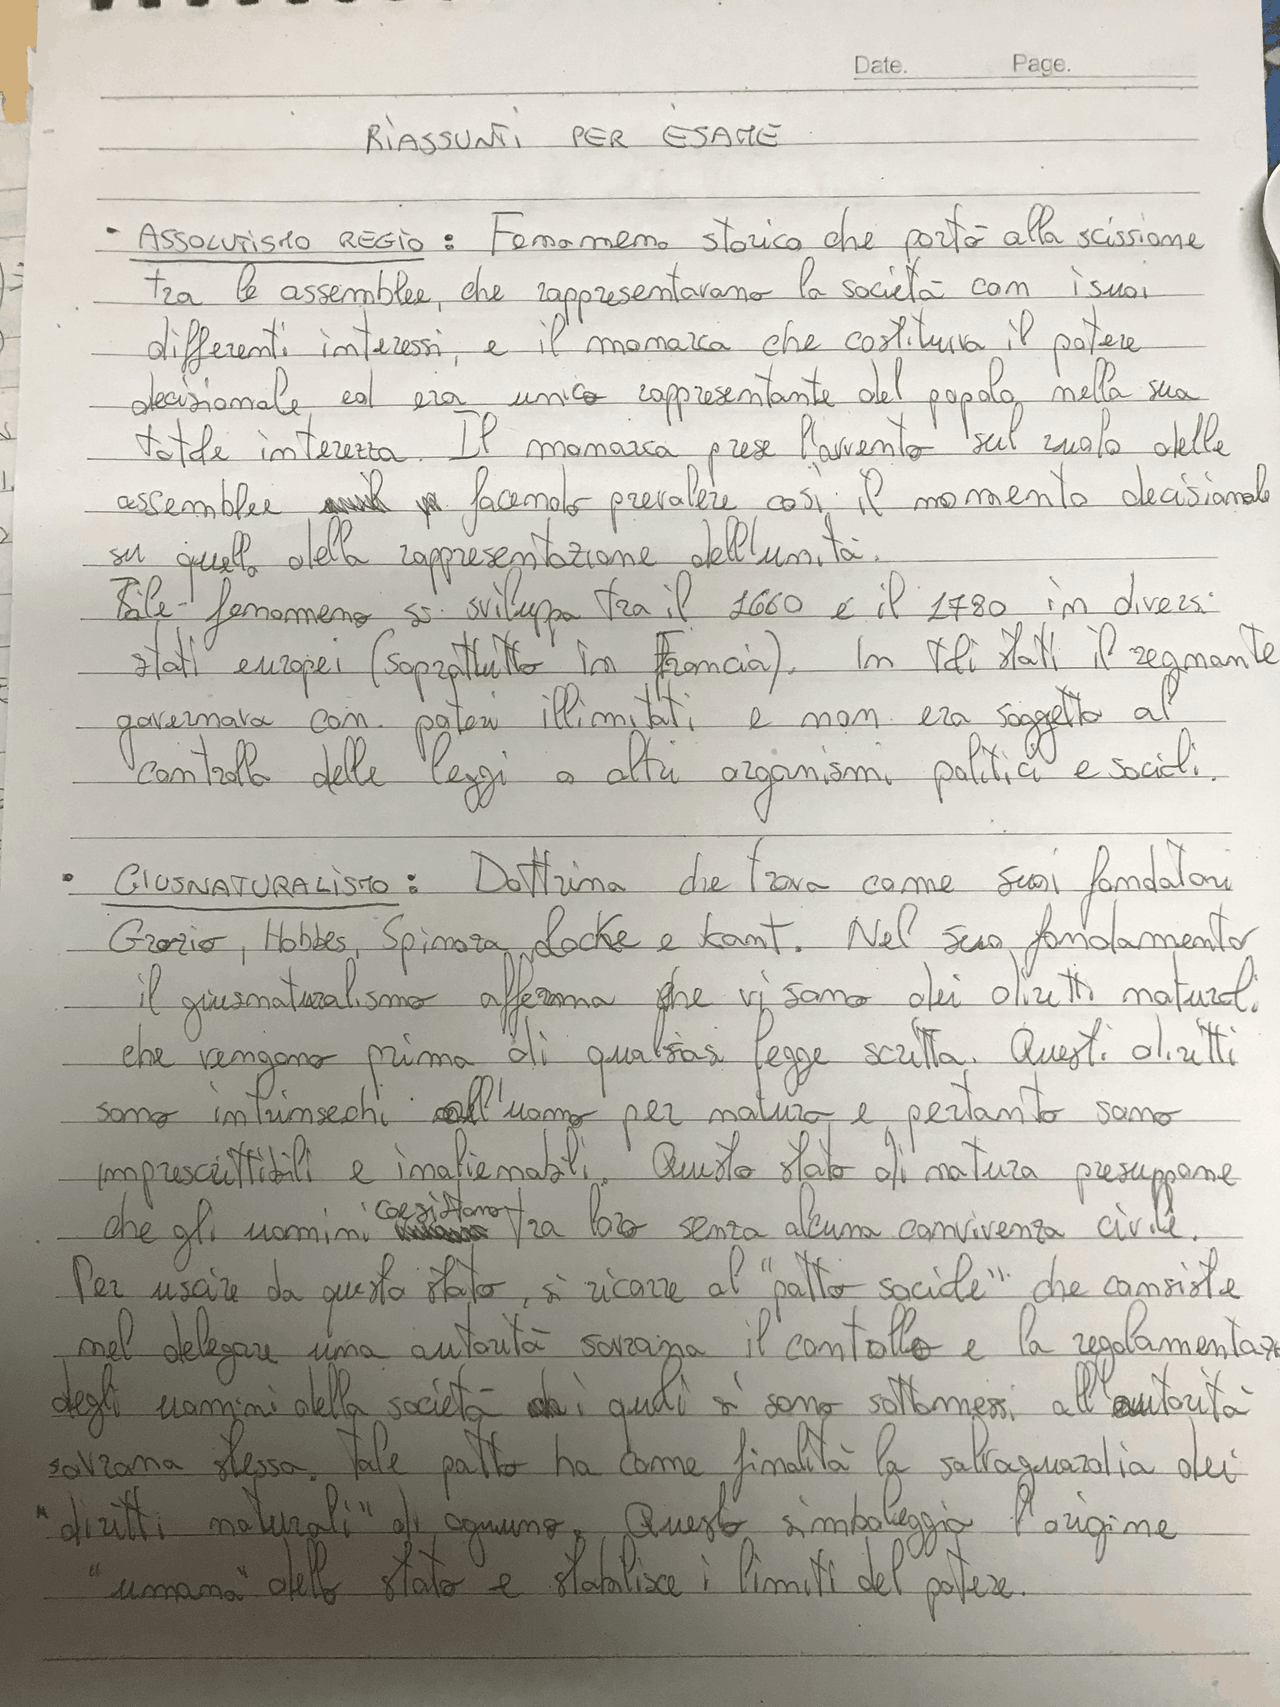 Date. Page.
RIASSUNTI PER ESAME
• ASSOLUTISMO REGIO: Fenomeno storico che portò alla scissione
tra le assemblee, che rappresentavano la società con i suoi
differenti interessi, e il monarca che costituiva il potere
decisionale ed era unico rappresentante del popolo nella sua
totale interezza. Il monarca prese l'avvento sul ruolo delle
assemblee facendo prevalere così il momento decisionale
su quello della rappresentazione dell'unità.
Tale fenomeno si sviluppa tra il 1660 e il 1780 in diversi
stati europei (soprattutto in Francia). In tali stati il regnante
governava con poteri illimitati e non era soggetto al
controllo delle leggi o altri organismi politici e sociali.
• GIUSNATURALISMO: Dottrina che trova come suoi fondatori
Grozio, Hobbes, Spinoza, Locke e Kant. Nel suo fondamento
il giusnaturalismo afferma che vi sono dei diritti naturali
che vengono prima di qualsiasi legge scritta. Questi diritti
sono intrinsechi all'uomo per natura e pertanto sono
imprescrittibili e inalienabili. Questo stato di natura presuppone
che gli uomini coesistano tra loro senza alcuna convivenza civile.
Per uscire da questo stato, si ricorre al "patto sociale" che consiste
nel delegare una autorità sovrana il controllo e la regolamentaz
degli uomini della società i quali si sono sottomessi all'autorità
sovrana stessa. Tale patto ha come finalità la salvaguardia dei
"diritti naturali" di ognuno. Questo simboleggia l'origine
"umana" dello stato e stabilisce i limiti del potere.